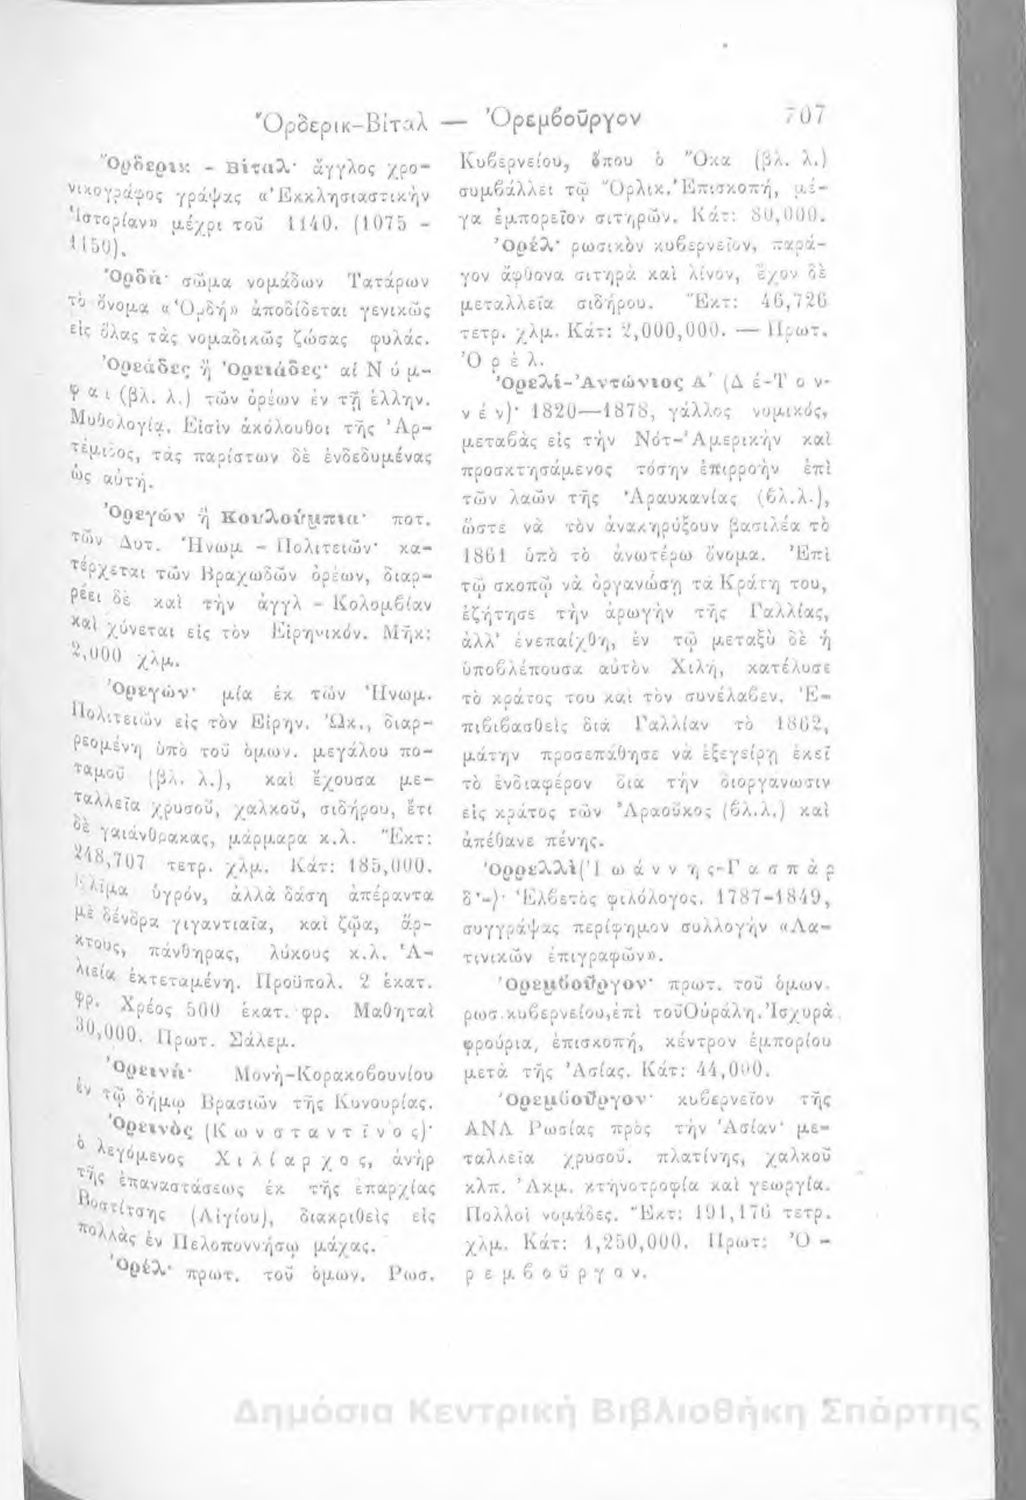 Ὄρδερικ-Βίταλ — Ὀρεμβοῦργον 707
Ὄρδερικ - Βίταλ· ἄγγλος χρο-
νικογράφος γράψας «Ἐκκλησιαστικὴν
Ἱστορίαν» μέχρι τοῦ 1140. (1075 -
1150).
Ὀρδή· σῶμα νομάδων Τατάρων
τὸ ὄνομα «Ὀρδή» ἀποδίδεται γενικῶς
εἰς ὅλας τὰς νομαδικῶς ζώσας φυλάς.
Ὀρεάδες ἢ Ὀρειάδες· αἱ Ν ύ μ-
φ α ι (βλ. λ.) τῶν ὀρέων ἐν τῇ ἑλλην.
Μυθολογίᾳ. Εἰσὶν ἀκόλουθοι τῆς Ἀρ-
τέμιδος, τὰς παρίστων δὲ ἐνδεδυμένας
ὡς αὐτή.
Ὀρεγὼν ἢ Κουλούμπια· ποτ.
τῶν Δυτ. Ἡνωμ - Πολιτειῶν· κα-
τέρχεται τῶν Βραχωδῶν ὀρέων, διαρ-
ρέει δὲ καὶ τὴν ἀγγλ - Κολομβίαν
καὶ χύνεται εἰς τὸν Εἰρηνικόν. Μῆκ:
2,000 χλμ.
Ὀρεγών· μία ἐκ τῶν Ἡνωμ.
Πολιτειῶν εἰς τὸν Εἰρην. Ὠκ., διαρ-
ρεομένη ὑπὸ τοῦ ὁμων. μεγάλου πο-
ταμοῦ (βλ. λ.), καὶ ἔχουσα με-
ταλλεῖα χρυσοῦ, χαλκοῦ, σιδήρου, ἔτι
δὲ γαιάνθρακας, μάρμαρα κ.λ. Ἔκτ:
248,707 τετρ. χλμ. Κάτ: 185,000.
Κλῖμα ὑγρόν, ἀλλὰ δάση ἀπέραντα
μὲ δένδρα γιγαντιαῖα, καὶ ζῷα, ἄρ-
κτους, πάνθηρας, λύκους κ.λ. Ἁ-
λιεία ἐκτεταμένη. Προϋπολ. 2 ἑκατ.
φρ. Χρέος 500 ἑκατ. φρ. Μαθηταὶ
30,000. Πρωτ. Σάλεμ.
Ὀρεινή· Μονὴ-Κορακοβουνίου
ἐν τῷ δήμῳ Βρασιῶν τῆς Κυνουρίας.
Ὀρεινὸς (Κ ω ν σ τ α ν τ ῖ ν ο ς)·
ὁ λεγόμενος Χ ι λ ί α ρ χ ο ς, ἀνὴρ
τῆς ἐπαναστάσεως ἐκ τῆς ἐπαρχίας
Βοστίτσης (Αἰγίου), διακριθεὶς εἰς
πολλὰς ἐν Πελοποννήσῳ μάχας.
Ὀρέλ· πρωτ. τοῦ ὁμων. Ρωσ.
Κυβερνείου, ὅπου ὁ Ὄκα (βλ. λ.)
συμβάλλει τῷ Ὄρλικ. Ἐπισκοπή, μέ-
γα ἐμπορεῖον σιτηρῶν. Κάτ: 80,000.
Ὀρέλ· ρωσικὸν κυβερνεῖον, παρά-
γον ἄφθονα σιτηρὰ καὶ λίνον, ἔχον δὲ
μεταλλεῖα σιδήρου. Ἔκτ: 46,726
τετρ. χλμ. Κάτ: 2,000,000. — Πρωτ.
Ὀ ρ έ λ.
Ὀρελί-Ἀντώνιος Α΄ (Δ έ-Τ ο ν-
ν έ ν)· 1820—1878, γάλλος νομικός,
μεταβὰς εἰς τὴν Νότ-Ἀμερικὴν καὶ
προσκτησάμενος τόσην ἐπιρροὴν ἐπὶ
τῶν λαῶν τῆς Ἀραυκανίας (βλ.λ.),
ὥστε νὰ τὸν ἀνακηρύξουν βασιλέα τὸ
1861 ὑπὸ τὸ ἀνωτέρω ὄνομα. Ἐπὶ
τῷ σκοπῷ νὰ ὀργανώσῃ τὰ Κράτη του,
ἐζήτησε τὴν ἀρωγὴν τῆς Γαλλίας,
ἀλλ' ἐνεπαίχθη, ἐν τῷ μεταξὺ δὲ ἡ
ὑποβλέπουσα αὐτὸν Χιλή, κατέλυσε
τὸ κράτος του καὶ τὸν συνέλαβεν. Ἐ-
πιβιβασθεὶς διὰ Γαλλίαν τὸ 1862,
μάτην προσεπάθησε νὰ ἐξεγείρῃ ἐκεῖ
τὸ ἐνδιαφέρον διὰ τὴν διοργάνωσιν
εἰς κράτος τῶν Ἀραοῦκος (βλ.λ.) καὶ
ἀπέθανε πένης.
Ὀρρελλὶ(Ἰ ω ά ν ν η ς-Γ α σ π ὰ ρ
δ'-)· Ἑλβετὸς φιλόλογος. 1787-1849,
συγγράψας περίφημον συλλογὴν «Λα-
τινικῶν ἐπιγραφῶν».
Ὀρεμβοῦργον· πρωτ. τοῦ ὁμων.
ρωσ.κυβερνείου,ἐπὶ τοῦΟὐράλη.Ἰσχυρὰ
φρούρια, ἐπισκοπή, κέντρον ἐμπορίου
μετὰ τῆς Ἀσίας. Κάτ: 44,000.
Ὀρεμβοῦργον· κυβερνεῖον τῆς
ΑΝΑ Ρωσίας πρὸς τὴν Ἀσίαν· με-
ταλλεῖα χρυσοῦ. πλατίνης, χαλκοῦ
κλπ. Ἀκμ. κτηνοτροφία καὶ γεωργία.
Πολλοὶ νομάδες. Ἔκτ: 191,176 τετρ.
χλμ. Κάτ: 1,250,000. Πρωτ: Ὀ -
ρ ε μ β ο ῦ ρ γ ο ν.
Δημόσια Κεντρική Βιβλιοθήκη Σπάρτης